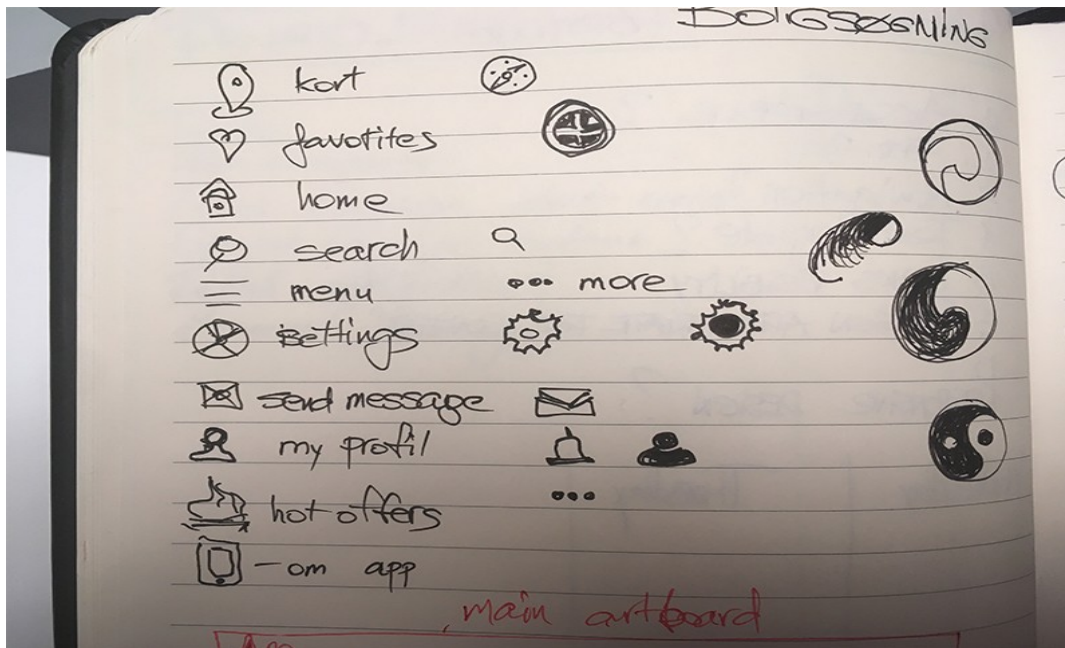 BOLIGSØGNING
kort
favorites
home
search
menu
••• more
settings
send message
my profil
hot offers
- om app
main artboard